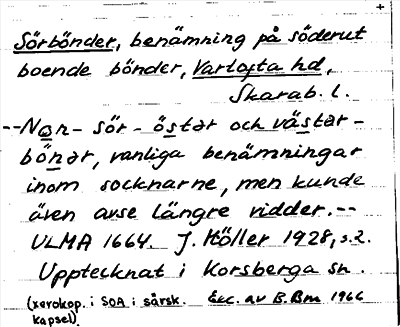 Sörbönder, benämning på söderut
boende bönder, Vartofta hd,
Skarab. l.
--Nɷn- sör- östər och västər-
bönər, vanliga benämningar
inom socknarne, men kunde
även avse längre vidder.--
ULMA 1664. J. Höller 1928, s.2.
Upptecknat i Korsberga sn.
(xerokop. i SOA i särsk. Exc. av B.Bm 1966
kapsel).